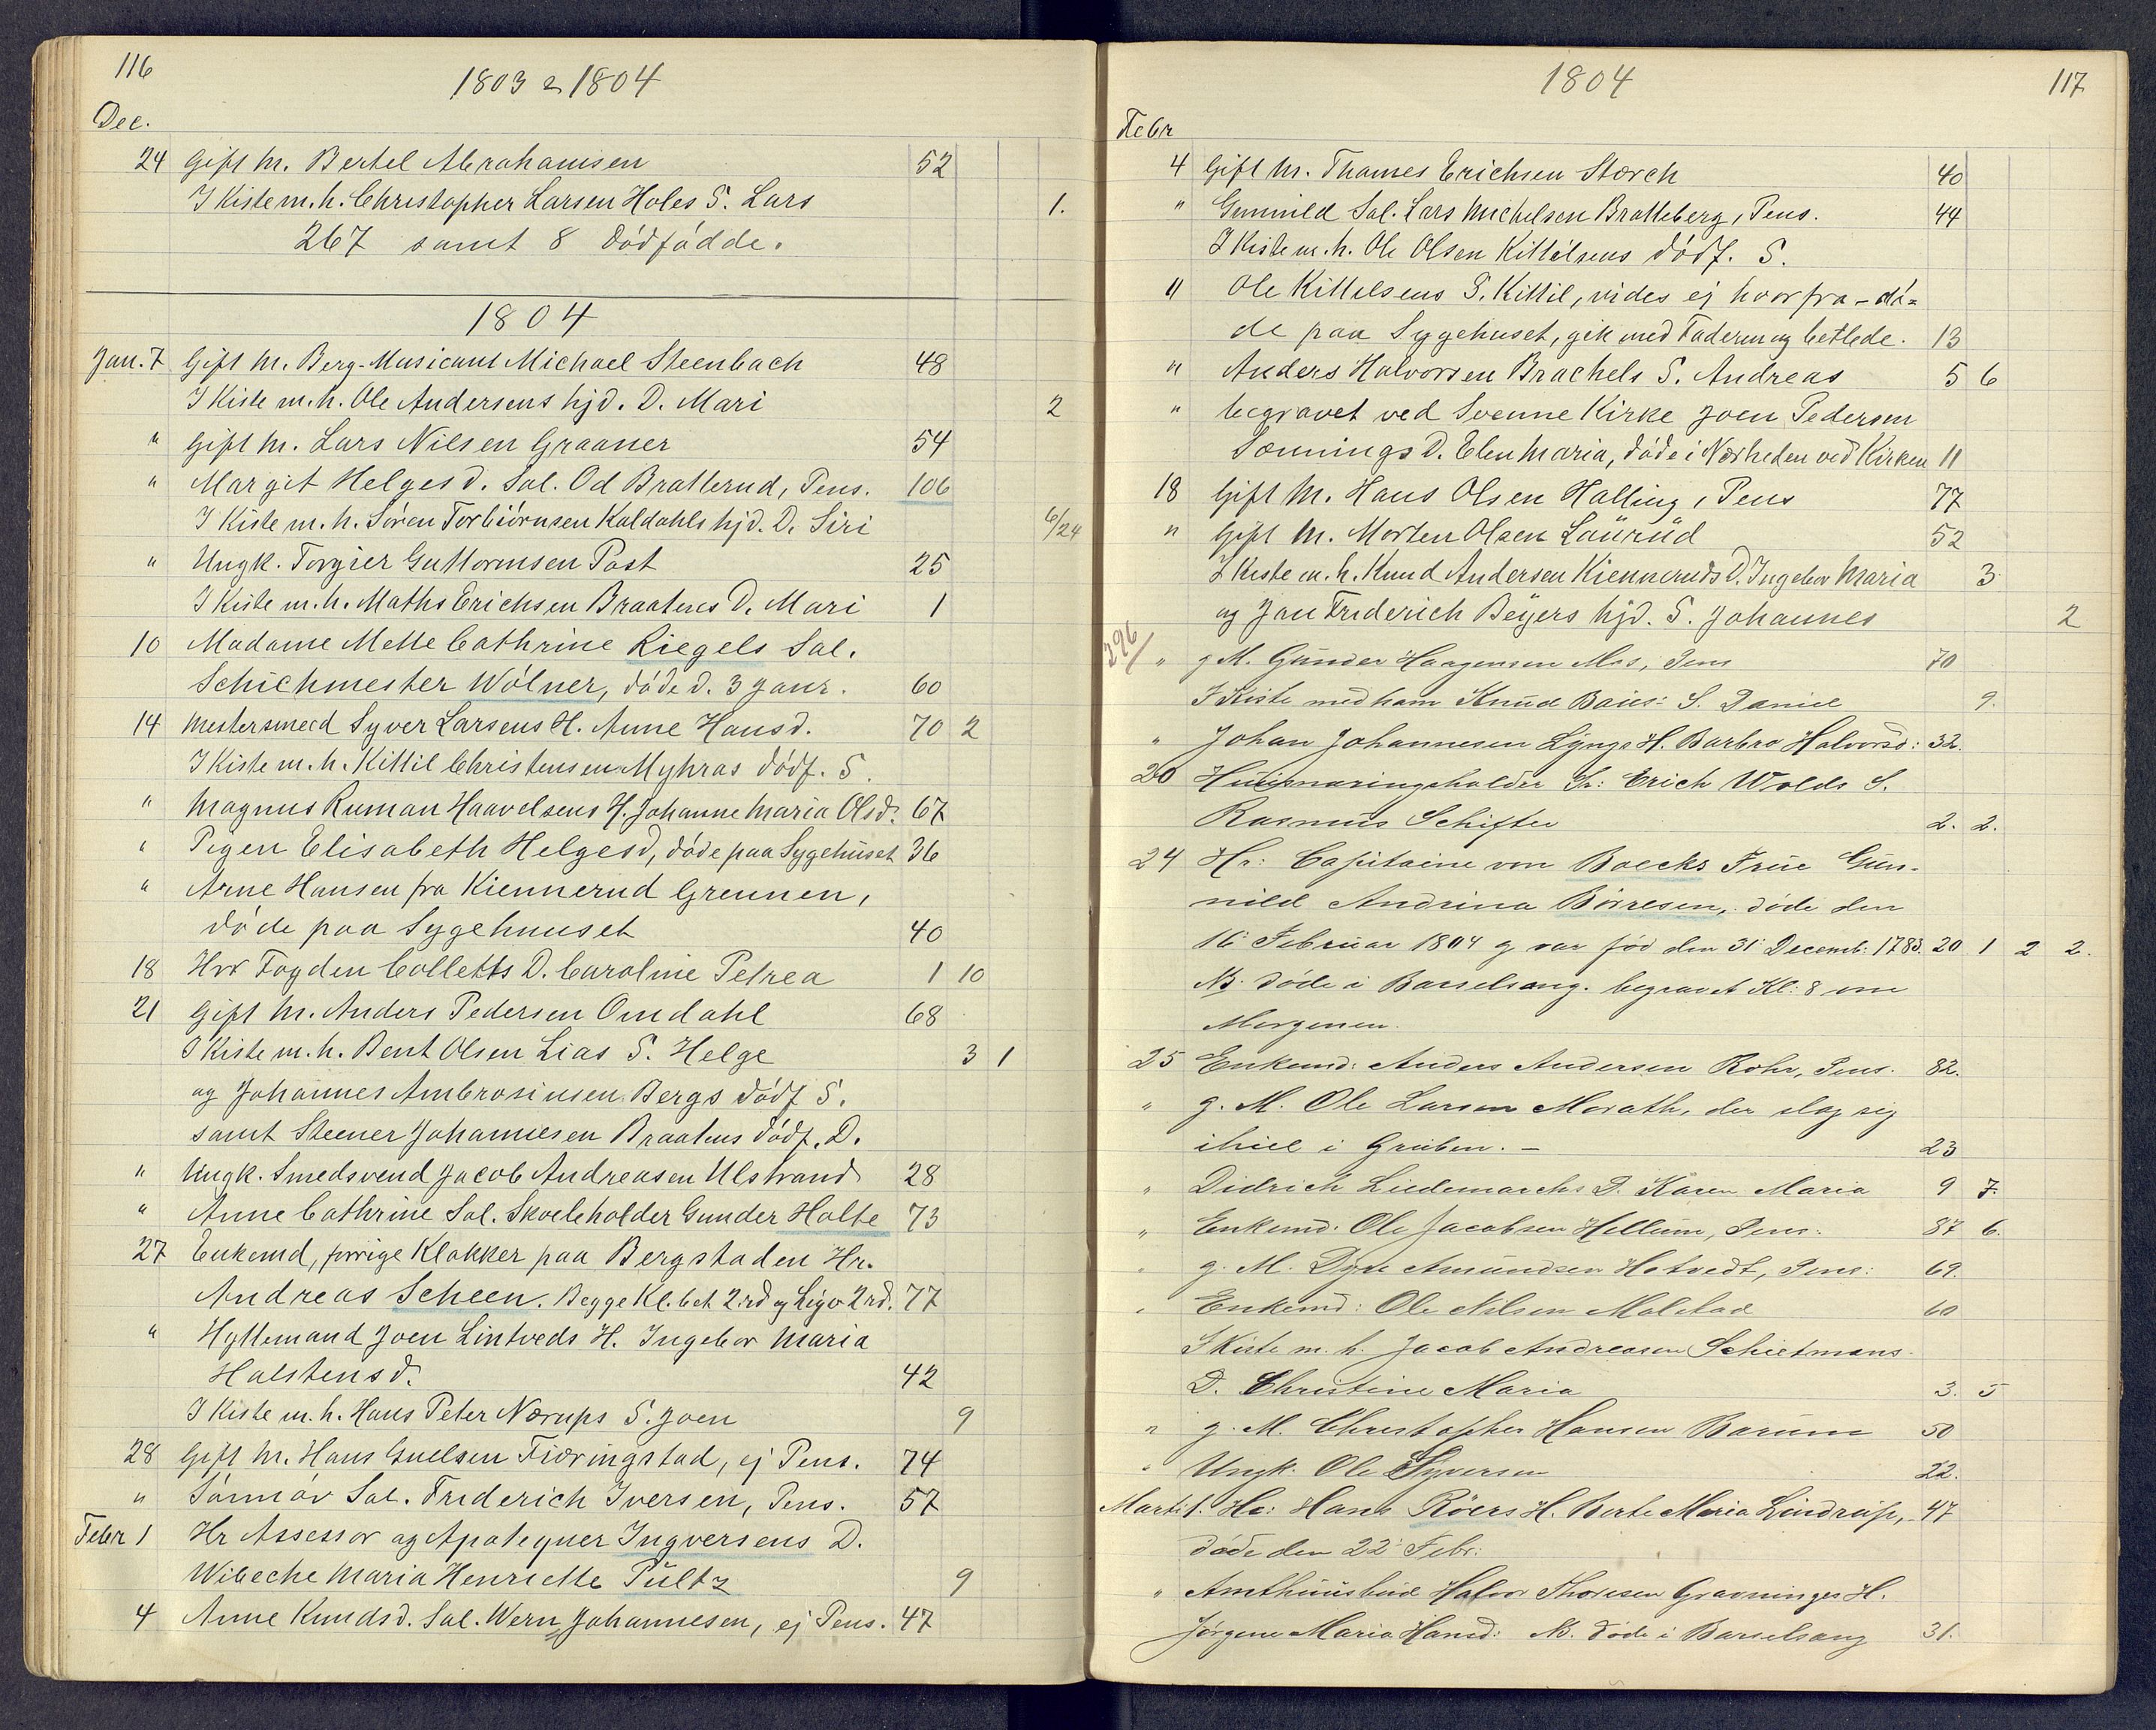 116
1803 & 1804
Dec.
24 Gift M. Bertel Abrahamsen 52
I Kiste m. h. Christopher Larsen Holes S. Lars 1.
267 samt 8 dödfödde.
1804
Jan. 7 Gift M. Berg-Musicant Michael Steenbach 48
I Kiste m. h. Ole Andersens hjd. D. Mari 2
" Gift M. Lars Nilsen Graaner 54
" Margit Helgesd. Sal. Od Bratterud, Pens. 106
I Kiste m. h. Sören Torbiörnsen Kaldahls hjd. D. Siri 6/24
" Ungk. Torgier Guttormsen Past 25
I Kiste m. h. Maths Erichsen Braatens D. Mari 1
10 Madame Mette Cathrine Riegels Sal.
Schichmester Wölner, döde d. 3 Janr. 60
14 Mestersmed Syver Larsens H. Anne Hansd. 70 2
I Kiste m. h. Kittil Christensen Myhras dödf. S.
" Magnus Ruman Haavelsens H. Johanne Maria Olsd. 67
" Pigen Elisabeth Helgesd, döde paa Sygehuset 36
" Arne Hansen fra Kiennerud Grennen,
döde paa Sygehuuset 40
18 Hrr Fogden Colletts D. Caroline Petrea 1 10
21 Gift M. Anders Pedersen Omdahl 68
I Kiste m. h. Bent Olsen Lias S. Helge 3 1
og Johannes Ambrosiusen Bergs dödf S.
samt Steener Johannesen Braatens dödf. D.
" Ungk. Smedsvend Jacob Andreasen Ulstrand 28
" Anne Cathrine Sal. Skoleholder Gunder Holte 73
27 Enkemd, forrige Klokker paa Bergstaden Hr.
Andreas Scheen. Begge Kl. bet. 2 rd og Ligv 2 rd. 77
" Hyttemand Joen Lintveds H. Ingebor Maria
Halstensd. 42
I Kiste m. h. Hans Peter Nærups S. Joen 9
28 Gift M. Hans Guelsen Fiøringstad, ej Pens. 74
" Sönnöv Sal. Friderich Iversen, Pens. 57
Febr 1 Hr Assessor og Apotequer Ingversens D.
Wibeche Maria Henriette Pültz 9
4 Anne Knudsd. Sal. Wern Johannesen, ej Pens. 47
1804
117
Febr
4 Gift M. Thames Erichsen Storch 40
" Gunnild Sal. Lars Michelsen Bratteberg, Pens. 44
I Kiste m. h. Ole Olsen Kittilsens dödf. S.
11 Ole Kittelsens S. Kittil, vides ej hvorfra - dö=
de paa Sygehuset, gik med Faderen og betlede. 13
" Anders Halvorsen Brachels S. Andreas 5 6
" begravet ved Svenne Kirke Joen Pedersen
Sønnings D. Elen Maria, döde i Nærheden ved Kirken 11
18 Gift M. Hans Olsen Halling, Pens 77
" Gift M. Morten Olsen Laürüd 52
I Kiste m. h. Knud Andersen Kienneruds D. Ingebor Maria 3
og Jan Friderich Beyers hjd. S. Johannes 2
296
" g M. Günder Haagensen Mos, Pens 70
I Kiste med ham Knüd S. Daniel 9.
" Johan Johannesen Lÿngs H. Barbro Halvorsd: 32.
20 Hüüsnæringsholder Sr: Erich Wolds S.
Rasmus Schifter 2. 2.
24 Hr: Capitaine von Boecks Früe Gün-
nild Andrina Börresen, döde den
16 Februar 1804 og var föd den 31 Decemb: 1783. 20 1 2 2.
NB. döde i Barselsang. begravet Kl: 8 om
Morgenen.
25 Enkemd: Anders Andersen Rohr, Pens. 82.
" g. M. Ole Larsen Morath, der slog sig
ihiel i Gruben. - 23
" Didrich Liedemarchs D. Karen Maria 9 7.
" Enkemd: Ole Jacobsen Hellum, Pens: 87 6.
" g. M. Dyre Amündsen Hotvedt, Pens: 69.
" Enkemd: Ole Nilsen Molstad 60
I Kiste m. h. Jacob Andreasen Schietmans
D. Christine Maria 3. 5
" g. M. Christopher Hansen Barüm 50
" Ungk. Ole Syversen 22.
Marti 1. Hr: Hans Röers H. Berte Maria Lindrüp, 47
döde den 22 Febr:
" Amthüüsbud Halvor Thoresen Gravninges H.
Jörgene Maria Hansd: NB. döde i Barselsang 31.